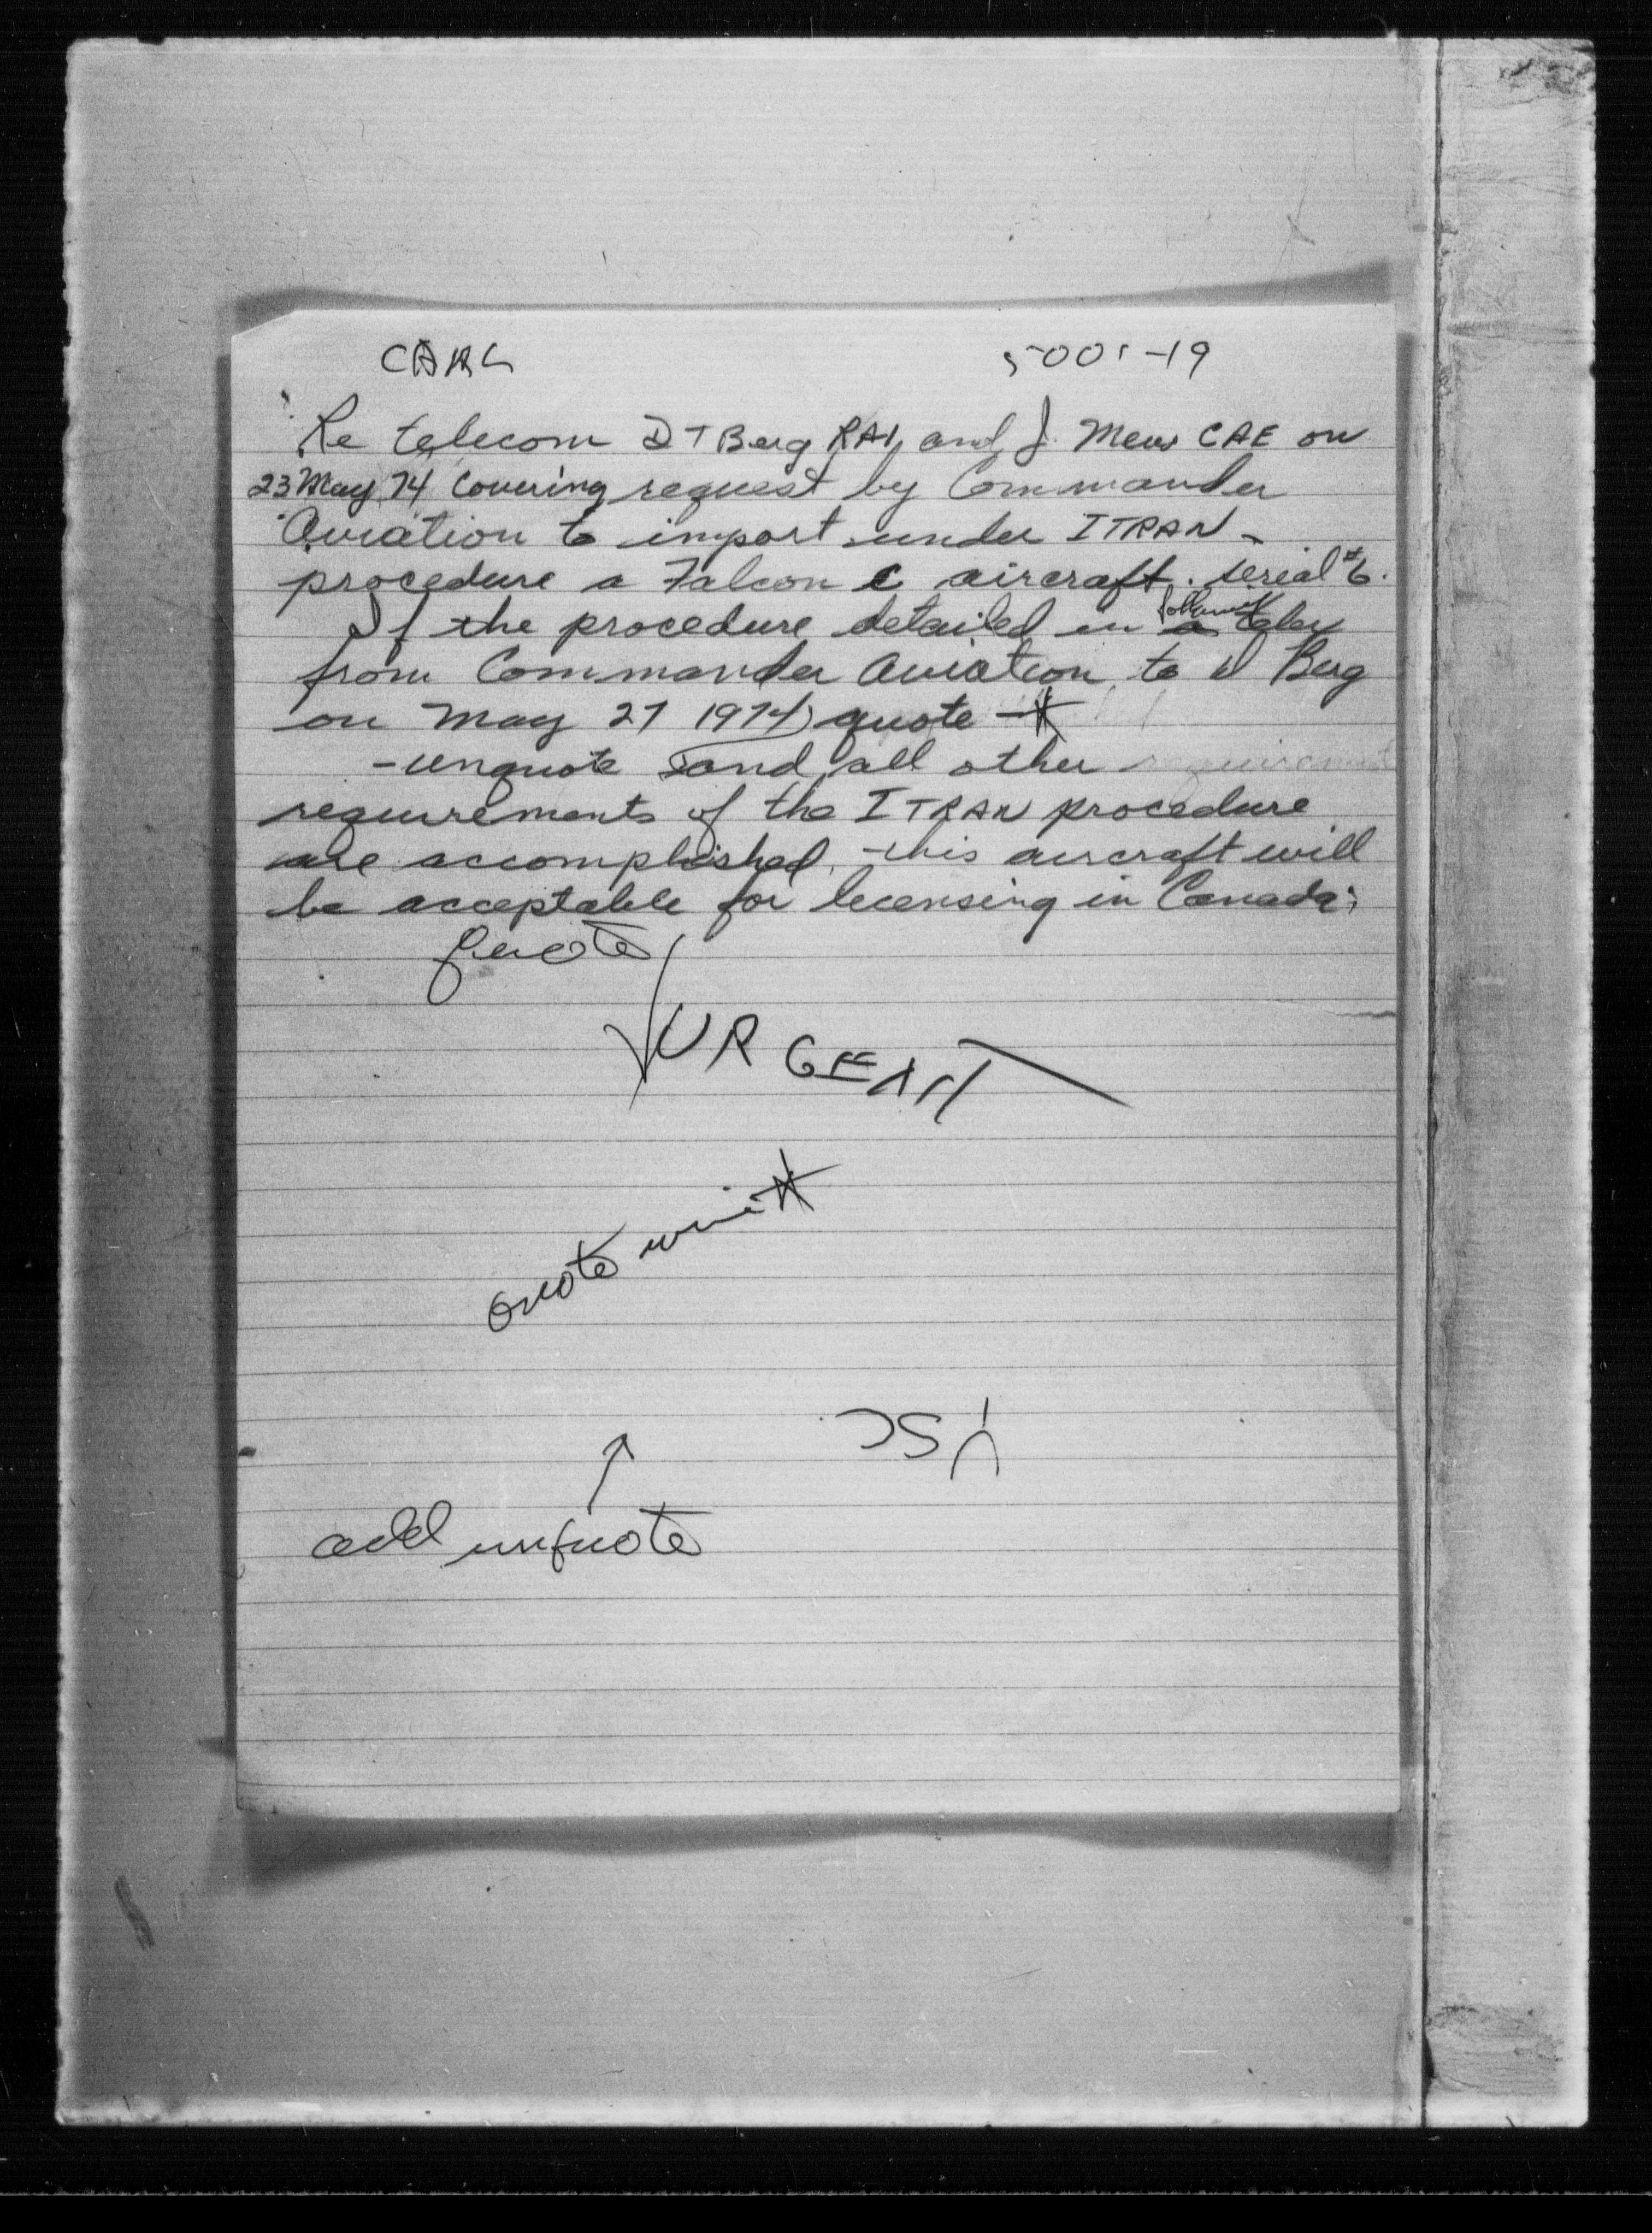 5001-19
Re telecom DT Berg RAI, and J. Mew CAE on
23 May 74 Covering request by Commander
Aviation to import under ITRAN -
procedure a Falcon C aircraft. serial #6.
If the procedure detailed in following telex
from Commander Aviation to D Berg
on May 27 1974) quote -*
-unquote and all other requirement
requirements of the ITRAN procedure
are accomplished, this aircraft will
be acceptable for licensing in Canada;
quote
URGENT
quote
add unquote